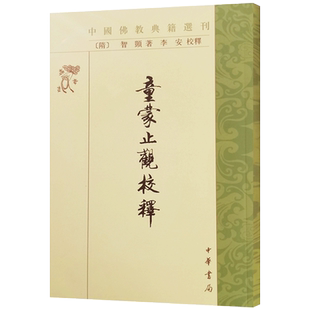 中國佛教典籍選刊
〔隋〕 智顗著 李安校釋
童蒙止觀校釋
中華書局